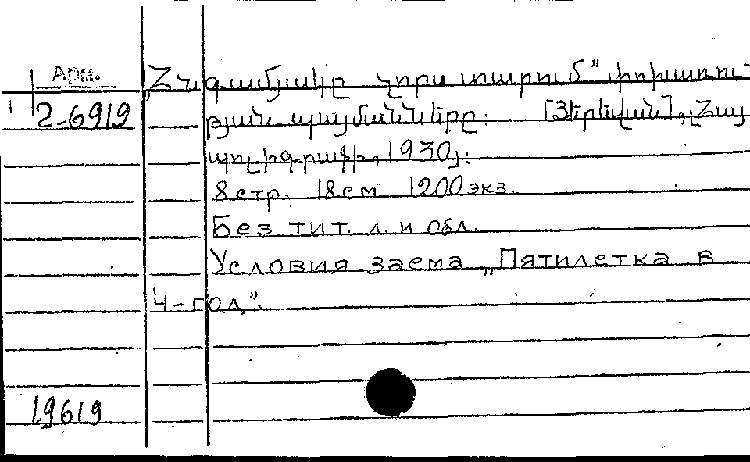 Арм.
„Հնգամյակը չորս տարում" փոխառու-
1 2-6919
թյան պայմանները: [Յերևան], Հայ
պոլիգրաֆ, 1930թ:
8 стр. 18см 1200 экз.
Без тит. л. и обл.
Условия заема „Пятилетка в
4-год".
19619